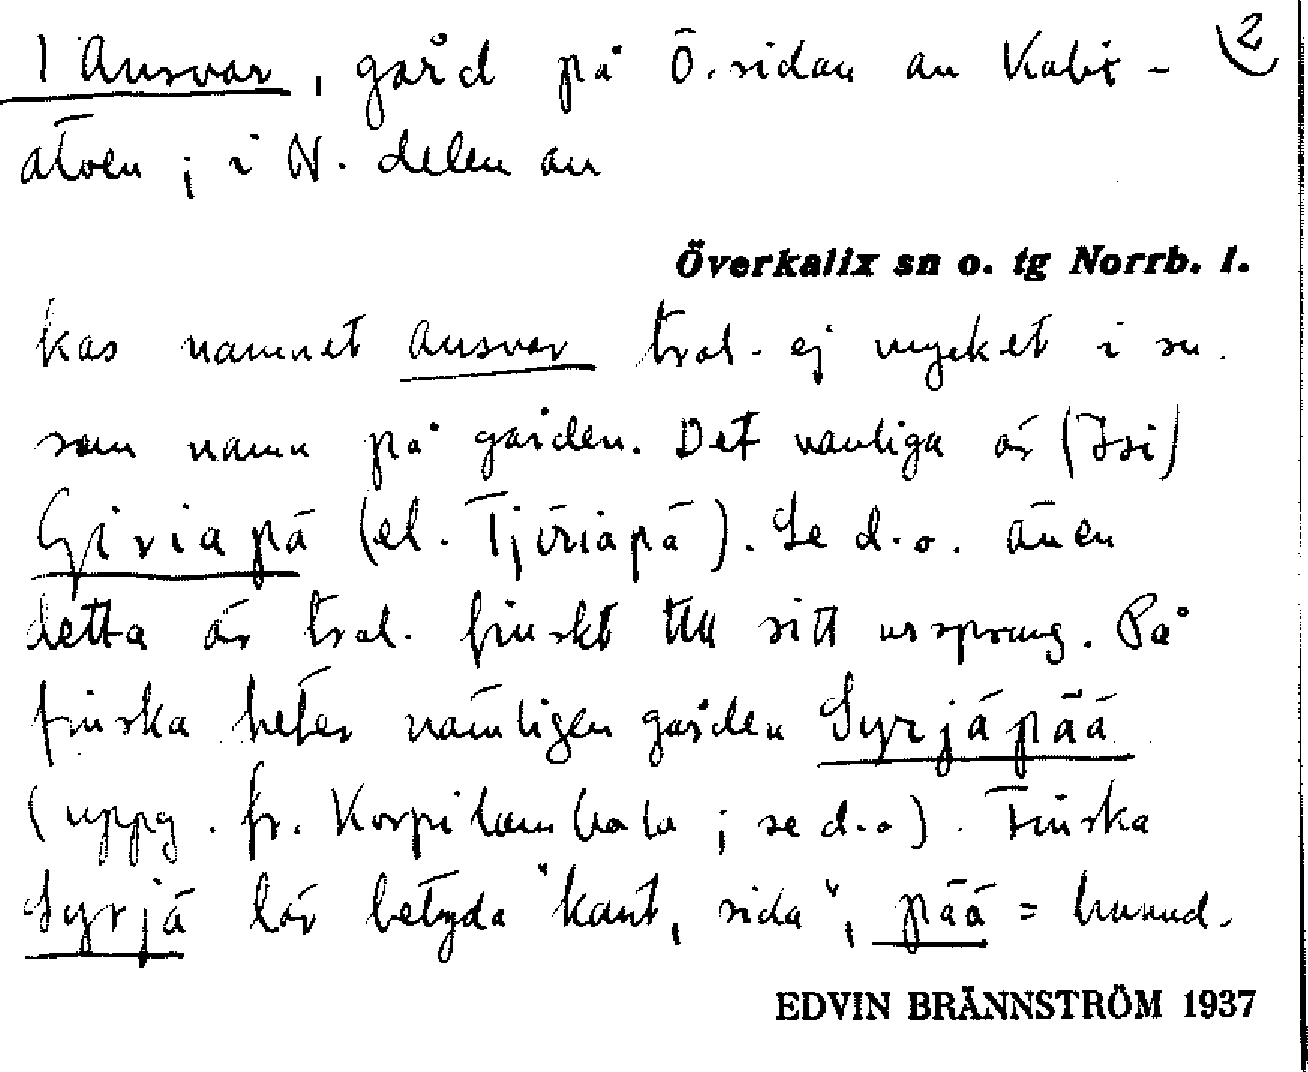 1 Ansvar, gård på Ö. sidan av Kalix- 2
älven; i N. delen av
Överkalix sn o. tg Norrb. l.
kas namnet Ansvar trol. ej mycket i sn.
som namn på gården. Det vanliga är (Isi)
Giviapä (el. Tjöriapä). Se d.o. även
detta är trol. finskt till sitt ursprung. På
finska heter nämligen gården Syrjäpää
(uppg. fr. Korpilombolo; se d.o). Finska
Syrjä lär betyda "kant, sida", pää = huvud.
EDVIN BRÄNNSTRÖM 1937